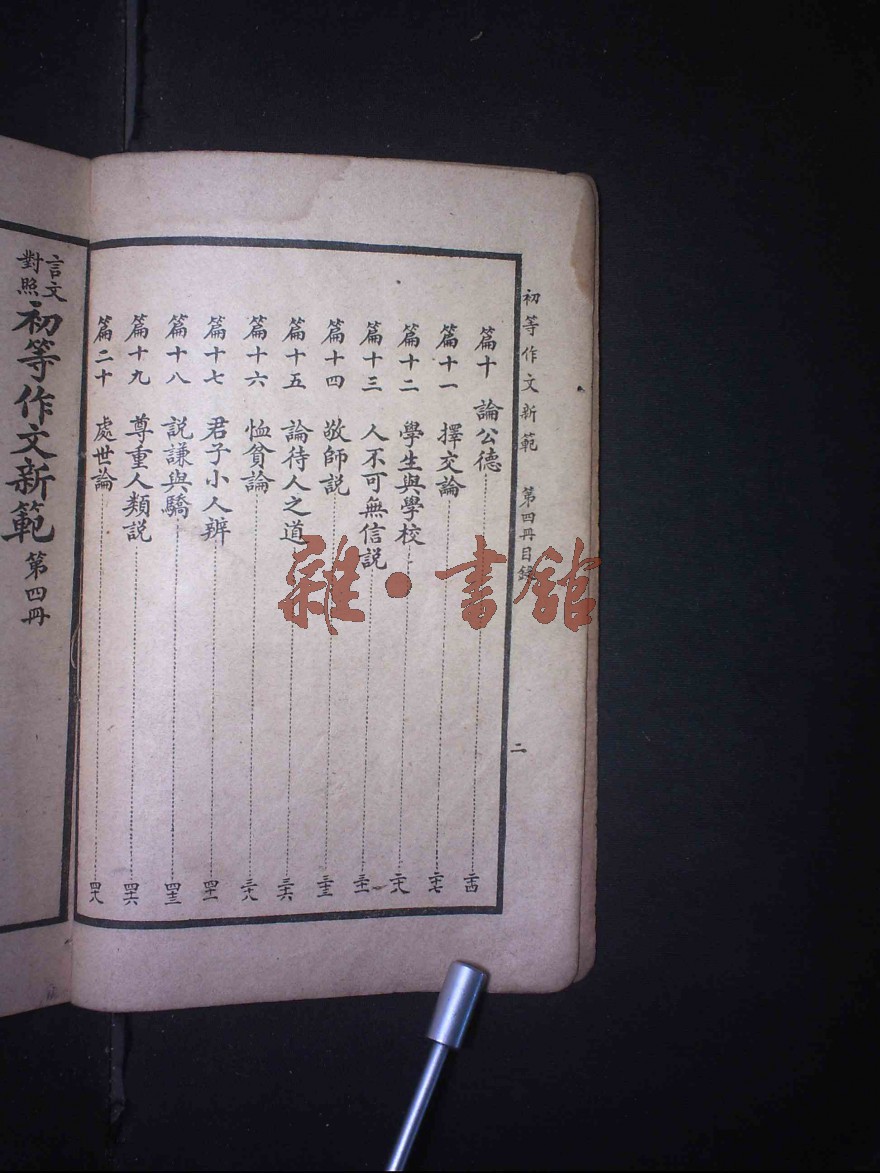 初等作文新範 第四冊目錄 二
篇十 論公德 二十四
篇十一 擇交論 二十七
篇十二 學生與學校 二十九
篇十三 人不可無信説 三十一
篇十四 敬師説 三十三
篇十五 論待人之道 三十六
篇十六 恤貧論 三十八
篇十七 君子小人辨 四十一
篇十八 説謙與驕 四十三
篇十九 尊重人類説 四十六
篇二十 處世論 四十八
言文對照 初等作文新範 第四冊
雜·書館